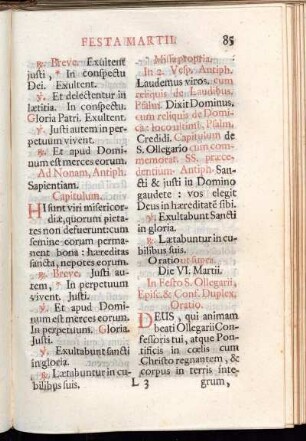 FESTA MARTII. 85
℟. Breve. Exultent
justi, * In conspectu
Dei. Exultent.
℣. Et delectentur in
lætitia. In conspectu.
Gloria Patri. Exultent.
℣. Justi autem in per-
petuum vivent.
℟. Et apud Domi-
num est merces eorum.
Ad Nonam, Antiph.
Sapientiam.
Capitulum.
HI sunt viri misericor-
diæ, quorum pietates
non defuerunt: cum
semine eorum permanent
bona: hæreditas
sancta, nepotes eorum.
℟. Breve. Justi au-
tem, * In perpetuum
vivent. Justi.
℣. Et apud Domi-
num est merces eorum.
In perpetuum. Gloria.
Justi.
℣. Exultabunt sancti
in gloria.
℟. Lætabuntur in cu-
bilibus suis.
Missa propria.
In 2. Vesp. Antiph.
Laudemus viros. cum
reliquis de Laudibus.
Psalm. Dixit Dominus.
cum reliquis de Domi-
nica: loco ultimi, Psalm.
Credidi. Capitulum de
S. Ollegario cum com-
memorat. SS. præce-
dentium. Antiph. San-
cti & justi in Domino
gaudete: vos elegit
Deus in hæreditatẽ sibi.
℣. Exultabunt Sancti
in gloria.
℟. Lætabuntur in cu-
bilibus suis.
Oratio ut supra.
Die VI. Martii.
In Festo S. Ollegarii,
Episc. & Conf. Duplex.
Oratio.
DEUS, qui animam
beati Ollegarii Con-
fessoris tui, atque Pon-
tificis in cœlis cum
Christo regnantem, &
corpus in terris inte-
L 3 grum,